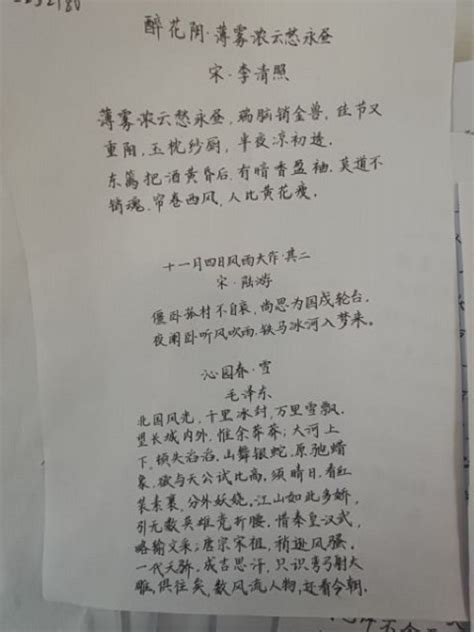 醉花阴·薄雾浓云愁永昼
宋·李清照
薄雾浓云愁永昼,瑞脑销金兽,佳节又
重阳,玉枕纱厨,半夜凉初透.
东篱把酒黄昏后,有暗香盈袖.莫道不
销魂,帘卷西风,人比黄花瘦.
十一月四日风雨大作·其二
宋·陆游
僵卧孤村不自哀,尚思为国戍轮台.
夜阑卧听风吹雨,铁马冰河入梦来。
沁园春·雪
毛泽东
北国风光,千里冰封,万里雪飘.
望长城内外,惟余莽莽;大河上
下,顿失滔滔.山舞银蛇,原驰蜡
象,欲与天公试比高.须晴日,看红
装素裹,分外妖娆.江山如此多娇,
引无数英雄竞折腰.惜秦皇汉武,
略输文采;唐宗宋祖,稍逊风骚.
一代天骄,成吉思汗,只识弯弓射大
雕,俱往矣,数风流人物,还看今朝.